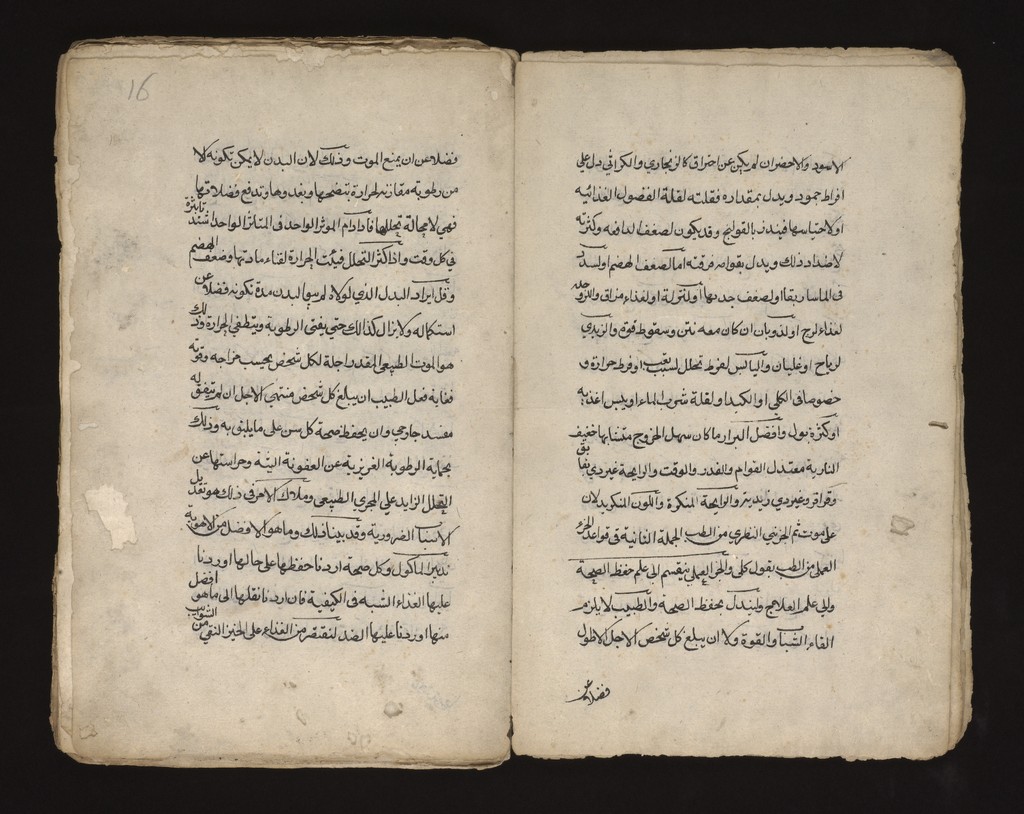 الاسود والاخضر ان لم يكن عن احتراق كالزنجاري والكراثي دل علي
افراط جمود ويدل بمقداره فقلته لقلة الفضول الغذائيه
اولاحتباسها فينذر بالقولنج وقد يكون لضعف الدافعه وكثرته
لاضداد ذلك ويدل بقوامه فرقته اما لضعف الهضم او لسدد
في الماساريقا او لضعف جذبها او لنزلة او لغذاء مزلق واللزوجه
لغذاء لزج او لذوبان ان كان معه نتن وسقوط قوة والزبدي
لرياح او غليان واليابس لفرط تحلل لتعب او فرط حرارة و
خصوصا في الكلي او الكبد او لقلة شرب الماء او يبس اغذيه
او كثرة بول وافضل البراز ما كان سهل الخروج متشابها خفيف
النارية معتدل القوام والقدر والوقت والرايحة غير ذي بقابق
وقراقر وغير ذي زبدية والرايحة المنكرة واللون المنكر يدلان
على موت ثم الجزئي النظري من الطب الجملة الثانية في قواعد الجزء
العملي من الطب بقول كلي والجزء العملي ينقسم الى علم حفظ الصحة
والي علم العلاج ولنبدأ بحفظ الصحة والطبيب لا يلزمه
ابقاء الشباب والقوة ولا ان يبلغ كل شخص الاجل الاطول
فضلا عن
16
فضلا عن ان يمنع الموت وذلك لان البدن لا يمكن تكونه الا
من رطوبة مقارنه لحرارة تنضجها وتغذوها وتدفع فضلاتها
فهي لا محالة تحللها فاذا دام الموثر الواحد في المتاثر الواحد اشتد تاثيره
في كل وقت واذا كثر التحلل فنيت الحرارة لفناء مادتها وضعف الهضم
وقل ايراد البدل الذي لولاه لم يبق البدن مدة تكونه فضلا عن
استكماله ولا يزال كذلك حتى يفنى الرطوبة وينطفي الحرارة وذلك
هو الموت الطبيعي المقدر اجله لكل شخص بحسب مزاجه وقوته
فغاية فعل الطبيب ان يبلغ كل شخص منتهي الاجل ان لم يتفق له
مفسد خارجي وان يحفظ صحة كل سن على ما يليق به وذلك
بحماية الرطوبة الغريزية عن العفونة البتة وحراستها عن
التحلل الزايد على المجري الطبيعي وملاك الامر في ذلك هو تعديل
الاسباب الضرورية وقد بينا ذلك وما هو الافضل من الاهويه
تدبير الماكول وكل صحة اردنا حفظها على حالها اوردنا
عليها الغذاء الشبه في الكيفية فان اردنا نقلها الى ما هو افضل
منها اوردنا عليها الضد لنقتصر من الغذاء على الخبز النقي من الشوايب